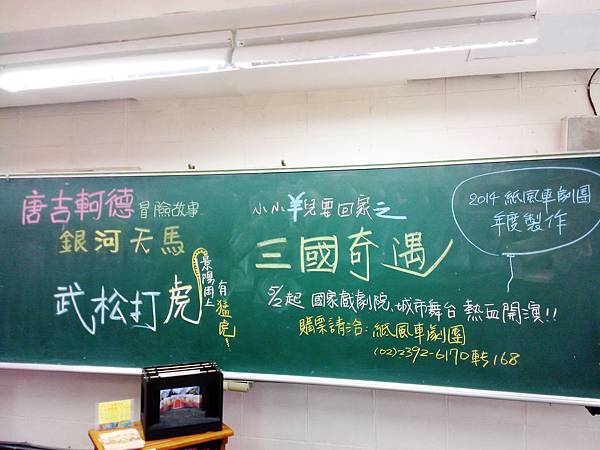 唐吉軻德冒險故事
銀河天馬
武松打虎
景陽岡上
有猛虎!
小小羊兒要回家之
三國奇遇
2014 紙風車劇團
年度製作
起 國家戲劇院、城市舞台 熱血開演!!
購票請洽:紙風車劇團
(02)2392-6170轉168